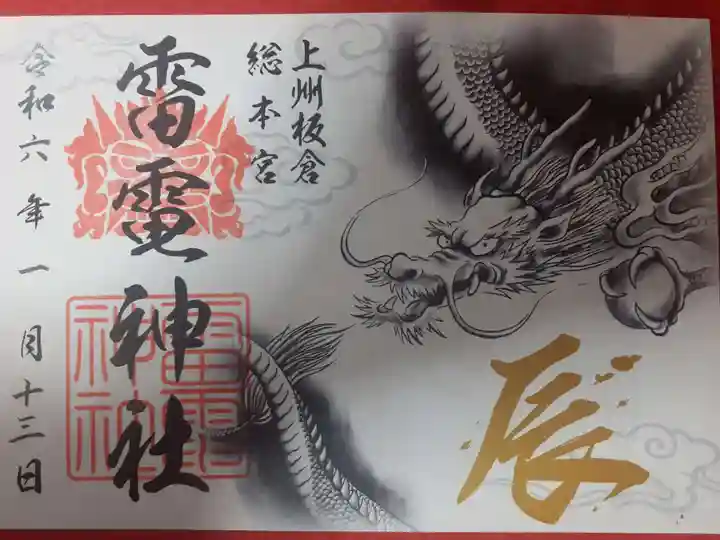 上州板倉
総本宮
雷電神社
雷電神社
令和六年一月十三日
辰